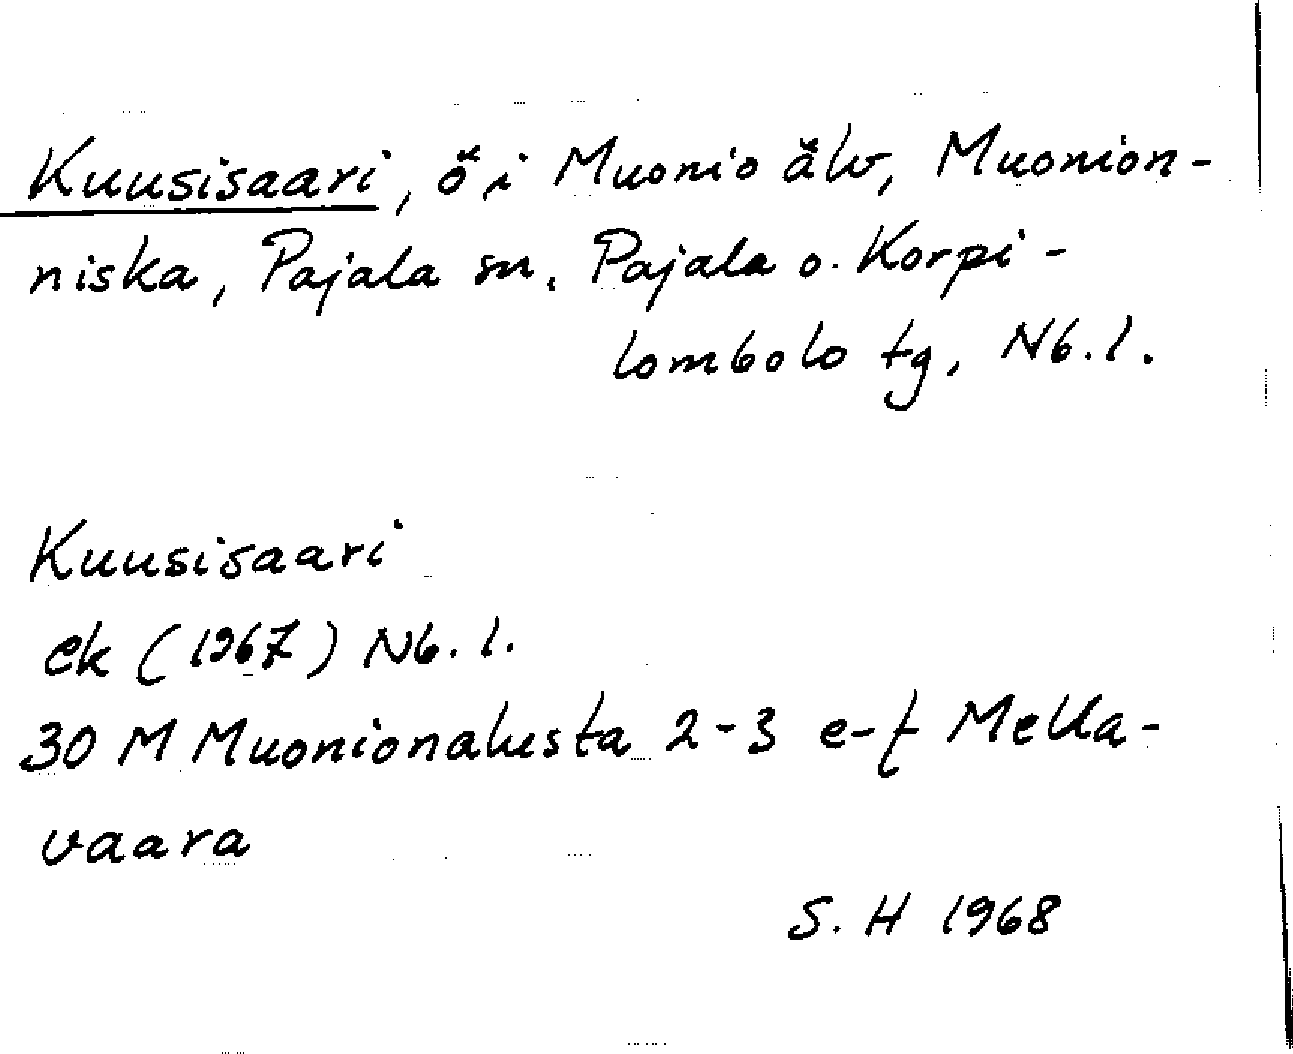 Kuusisaari, ö i Muonio älv, Muonion-
niska, Pajala sn. Pajala o. Korpi-
lombolo tg, Nb.l.
Kuusisaari
ek (1967) Nb.l.
30 M Muonionalusta 2-3 e-f Mella-
vaara
S. H 1968